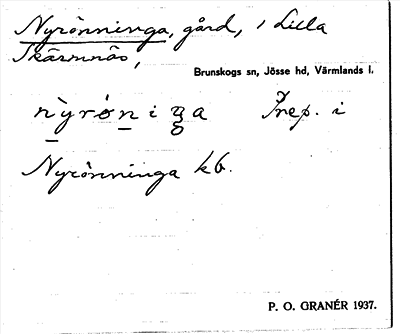 Nyrönninga, gård, i Lilla
Skärmnäs,
Brunskogs sn, Jösse hd, Värmlands l.
nỳrö́niŋa Prep. i
Nyrönninga kb.
P. O. GRANÉR 1937.